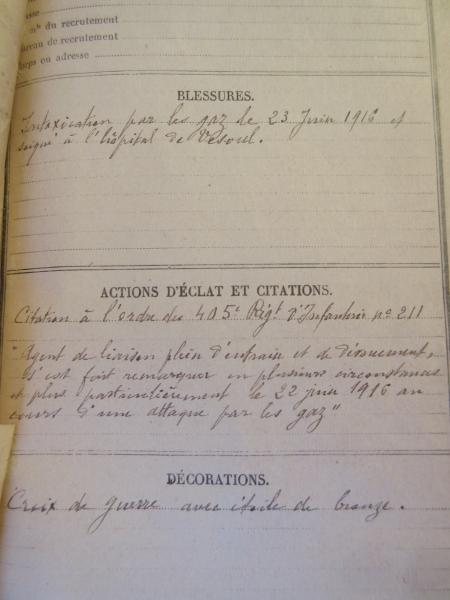 esse
n° du recrutement
ureau de recrutement
orps ou adresse
BLESSURES.
Intoxication par les gaz le 23 Juin 1916 et
soigné à l'hôpital de Vesoul.
ACTIONS D'ÉCLAT ET CITATIONS.
Citation à l'ordre du 405e Rigt d'Infanterie n° 211
"Agent de liaison plein d'entrain et de dévouement,
s'est fait remarquer en plusieurs circonstances
et plus particulièrement le 22 juin 1916 au
cours d'une attaque par les gaz"
DÉCORATIONS.
Croix de guerre avec étoile de bronze.